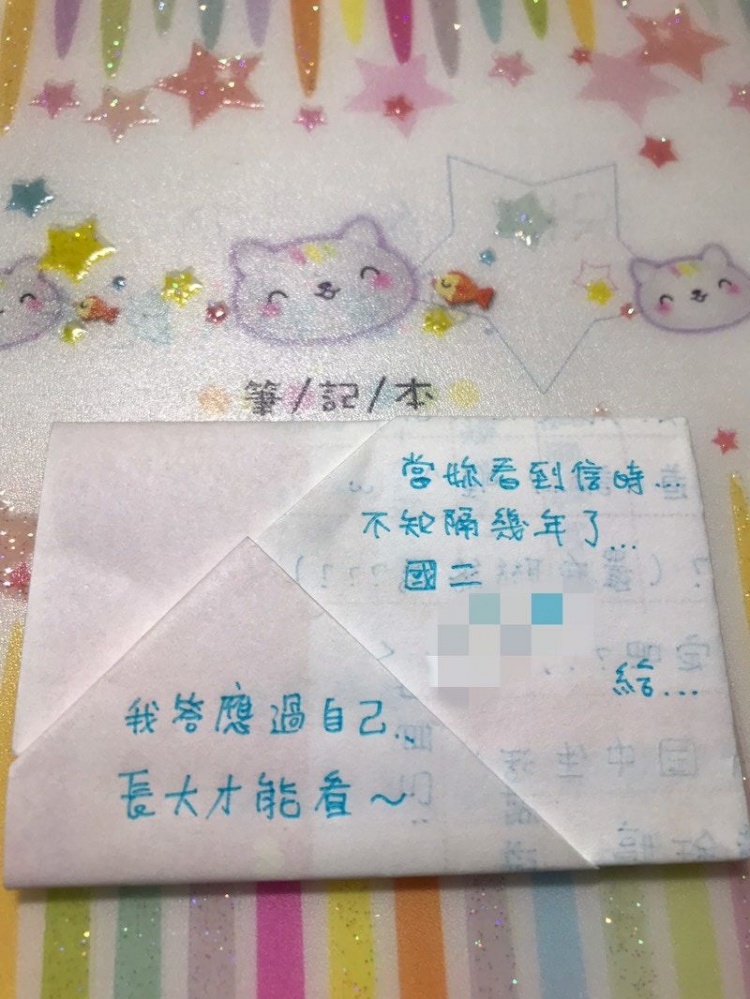 筆/記/本
當妳看到信時...
不知隔幾年了...
國二
給...
我答應過自己...
長大才能看～